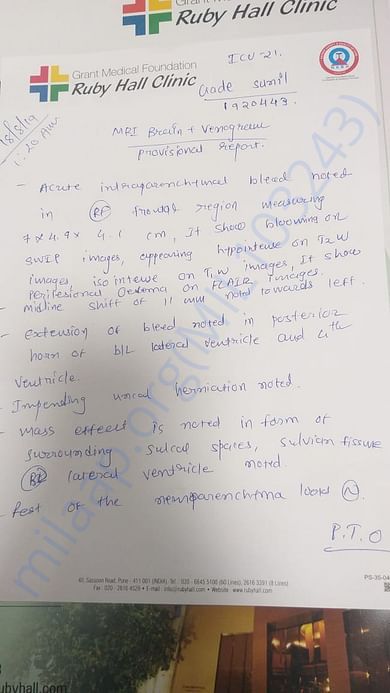 Grant Medical Foundation
Ruby Hall Clinic
Grant Medical Foundation
Ruby Hall Clinic
ICU-21.
Gade Sunil
1920443.
18/8/19
1:20 AM
MRI Brain + Venogram
Provisional Report.
- Acute intraparenchymal bleed noted
in Rt frontal region measuring
7 x 4.9 x 4.1 cm, It show blooming on
SWIP images, appearing hypointense on T2W
images, isointense on T1W images, It show
Perilesional Oedema on FLAIR images.
- midline shift of 11 mm noted towards left.
- extension of bleed noted in posterior
horn of B/L lateral ventricle and 4th
ventricle.
- Impending uncal herniation noted.
- mass effect is noted in form of
surrounding sulcal spaces, sulvian fissure
lateral ventricle noted.
- Rest of the neuroparenchyma looks N.
P.T.O
40, Sassoon Road, Pune - 411 001 (INDIA) Tel.: 020 - 6645 5100 (60 Lines), 2616 3391 (8 Lines)
Fax : 020 - 2616 4529 • E-mail : info@rubyhall.com • Website : www.rubyhall.com
PS-35-04
milaap.org(MILT108243)
ubyhall.com